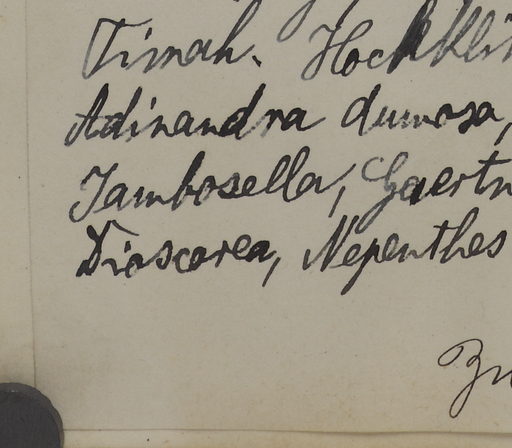 Timah.
Adinandra dumosa,
Jambosella, Gaertn
Dioscorea, Nepenthes